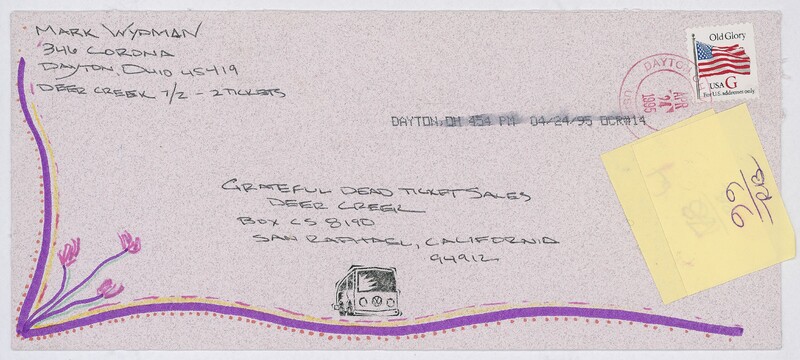 MARK WYDMAN
346 CORONA
DAYTON, OHIO 45419
DEER CREEK 7/2 - 2 TICKETS
Old Glory
USA G
For U.S. addresses only
DAYTON
APR
24
1995
DAYTON, OH 454 PM 04/24/95 OCR#14
GRATEFUL DEAD TICKET SALES
DEER CREEK
BOX CS 8190
SAN RAPHAEL, CALIFORNIA
94912